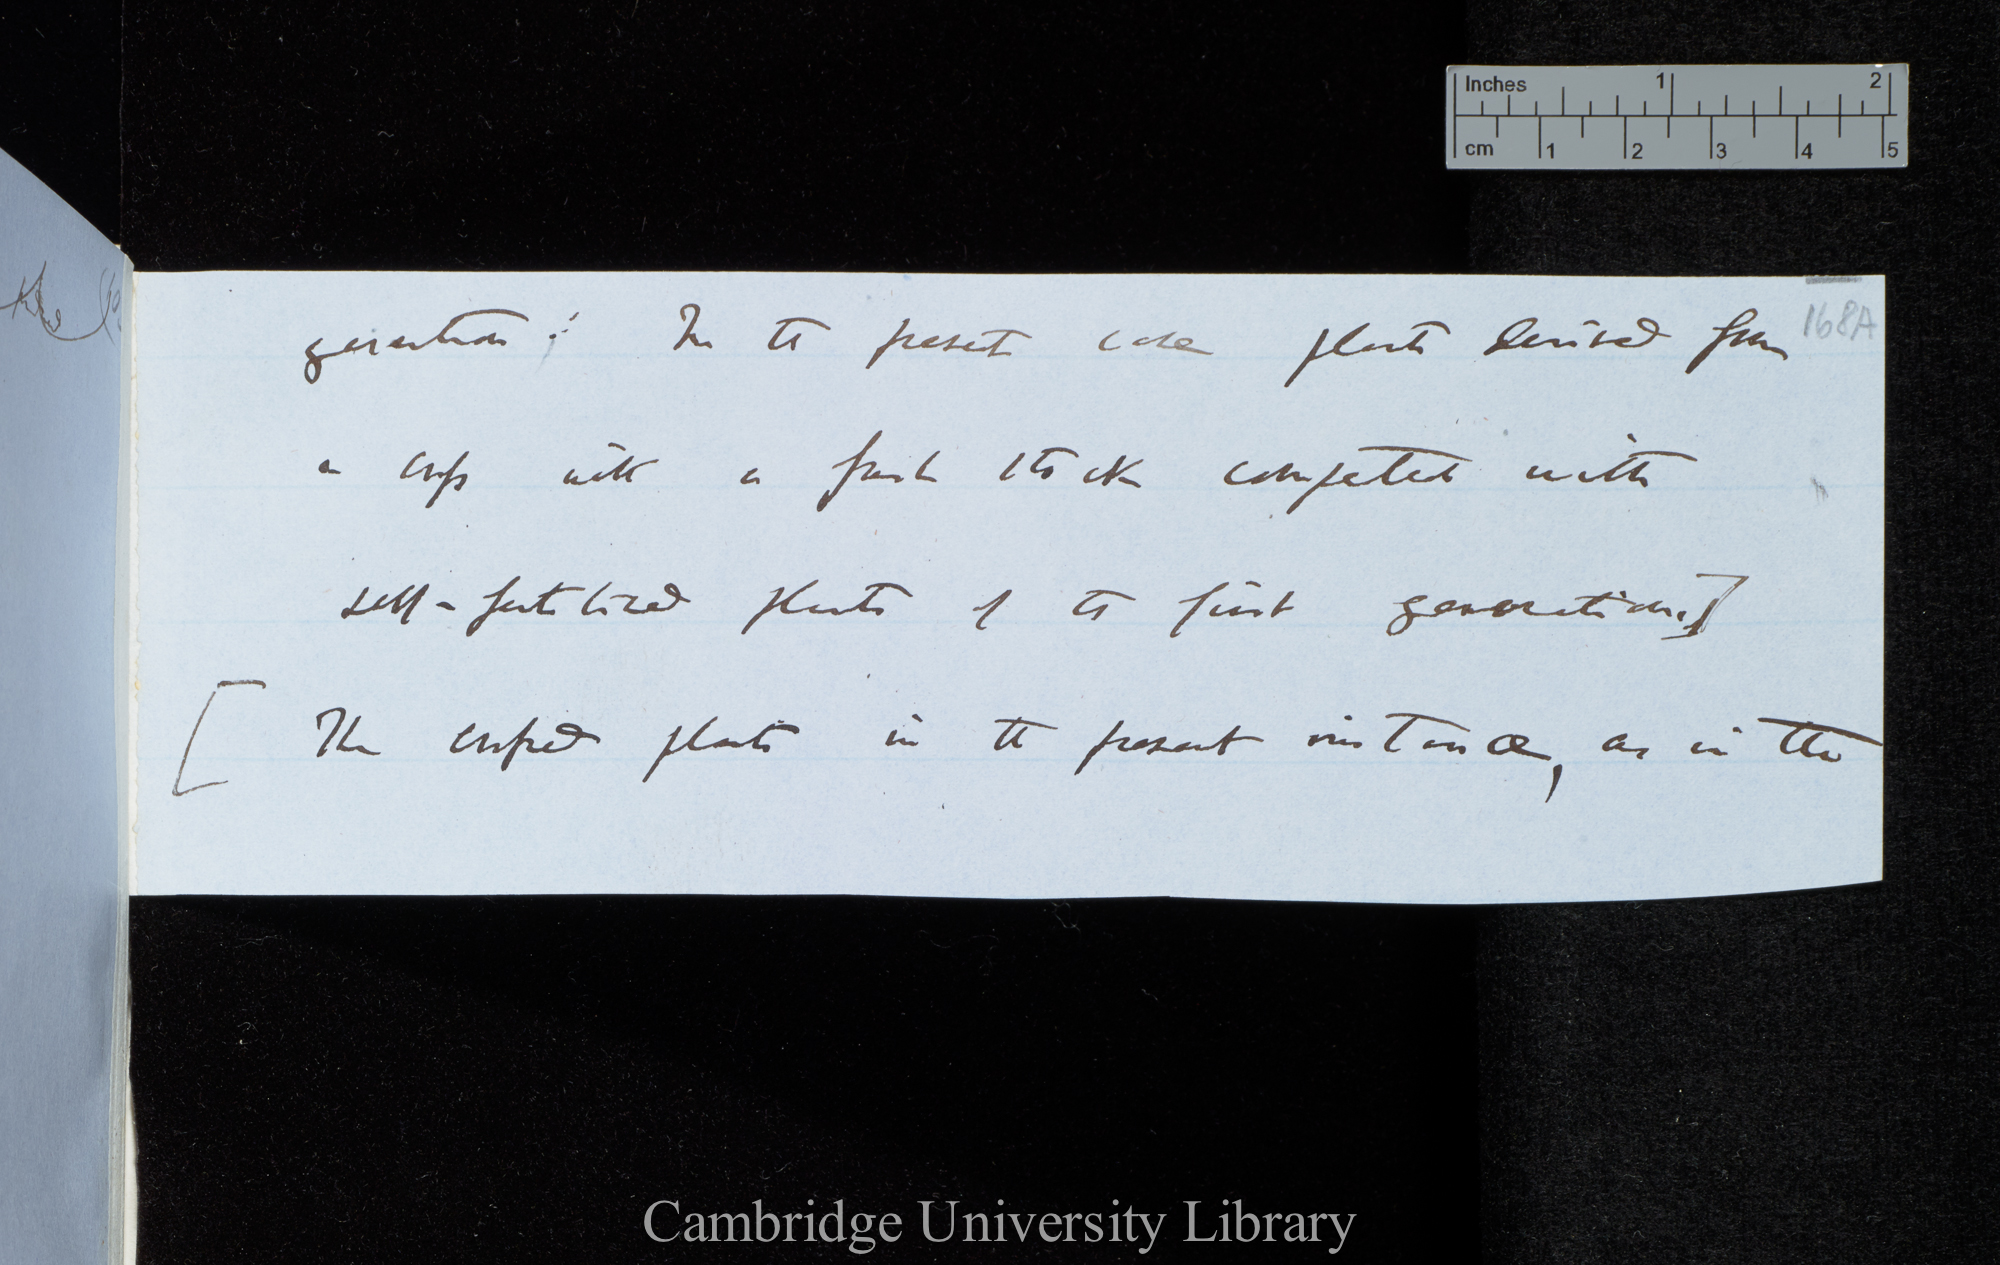 Inches 1 2
cm 1 2 3 4 5
168A
generation: In the present case plants derived from
a cross with a fresh stock competed with
self-fertilized plants of the first generation.]
[The crossed plants in the present instance, as in the
Cambridge University Library